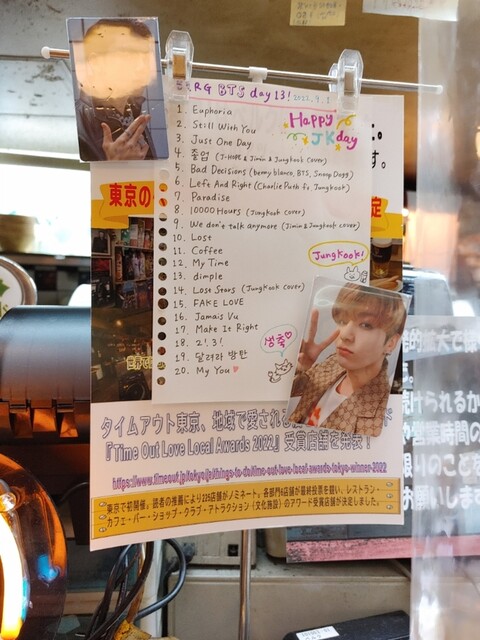 BTS day 13! 2022.9.1
Happy
JK day
1. Euphoria
2. Still With You
3. Just One Day
4. 졸업 (J-HOPE & Jimin & Jungkook cover)
5. Bad Decisions (benny blanco, BTS, Snoop Dogg)
6. Left And Right (Charlie Puth ft. Jungkook)
7. Paradise
8 10000 Hours (Jungkook cover)
9. We don't talk anymore (Jimin & Jungkook cover)
10. Lost
11. Coffee
12. My Time
13. dimple
14. Lost Stars (Jungkook cover)
15. FAKE LOVE
16. Jamais Vu
17. Make It Right
18. 2! 3!
19. 달려라 방탄
20. My You
Jungkook!
생축♡
東京の
定
す。
世界で
タイムアウト東京、地域で愛される
『Time Out Love Local Awards 2022』受賞店舗を発表！
https://www.timeout.jp/tokyo/ja/things-to-do/time-out-love-local-awards-tokyo-winner-2022
東京で初開催。読者の推薦により225店舗がノミネート。各部門4店舗が最終投票を競い、レストラン・
カフェ・バー・ショップ・クラブ・アトラクション（文化施設）のアワード受賞店舗が決定しました。
営業時間の
お願いしま